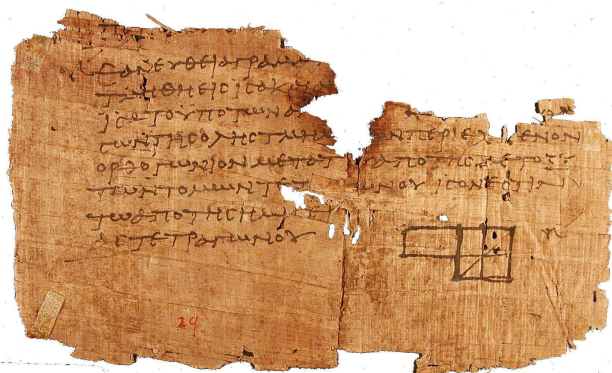 ΕΑΝΕΥΘΕΙΑΓΡΑΜ
ΤΜΗΘΗΕΙϹΙϹΑΚΑΙ
ΙϹΑΤΟΥΠΟΤΩΝΑ
ϹΩΝΤΗϹΟΛΗϹΤΜΗΜ ΝΠΕΡΙΕΧ ΜΕΝΟΝ
ΟΡΘΟΓΩΝΙΟΝΜΕΤΑΤ ΑΠΟΤΗϹΜΕΤΟΞΥ
ΤΩΝΤΟΜΩΝΤΕΤ ΩΝΟΥΙϹΟΝΕϹΤΙΝ
ΤΩΑΠΟΤΗϹΗΜΙϹ
ΑϹΤΕΤΡΑΓΩΝΟΥ
29.